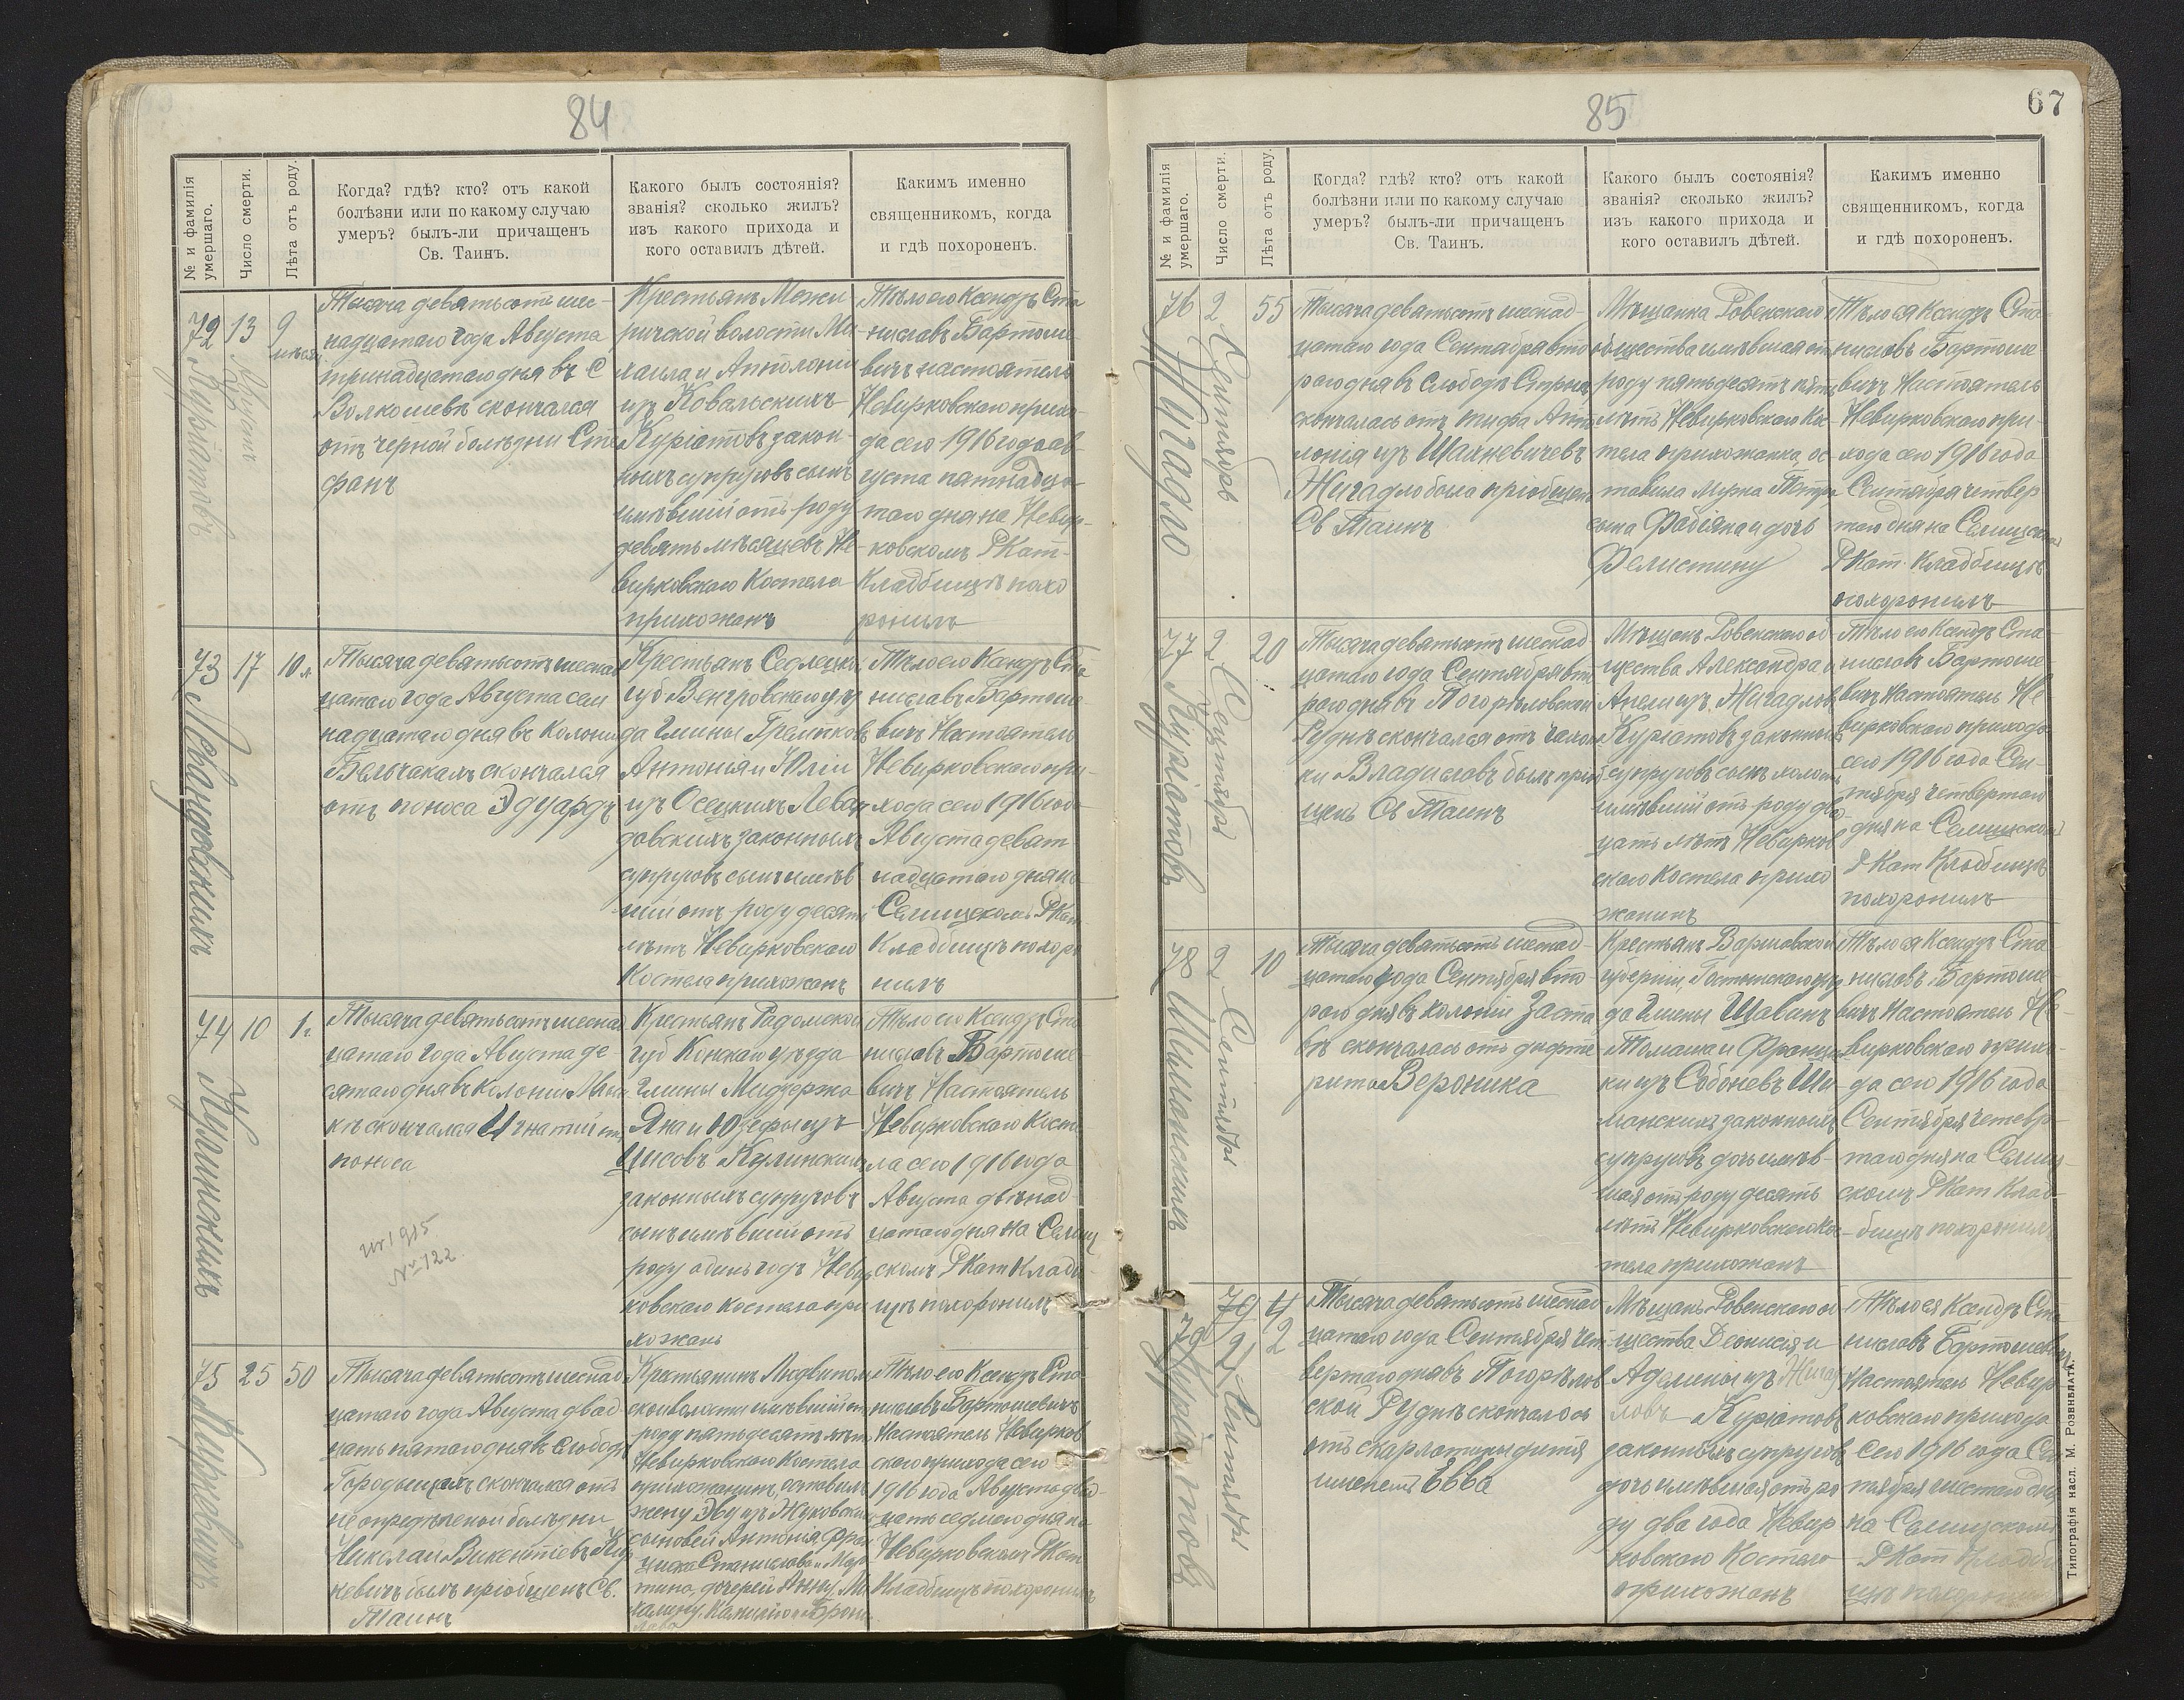 84
№ и фамилія умершаго.
Число смерти.
Лѣта отъ роду.
Когда? гдѣ? кто? отъ какой
болѣзни или по какому случаю
умеръ? былъ-ли причащенъ
Св. Таинъ.
Какого былъ состоянія?
званія? сколько жилъ?
изъ какого прихода и
кого оставилъ дѣтей.
Какимъ именно
священникомъ, когда
и гдѣ похороненъ.
72
Куріатовъ
13
Августа
9
Тысяча девятьсотъ шес-
надцатаго года Августа
тринадцатаго дня въ С
скончался
отъ черной болѣзни Сте
фанъ
Крестьянъ Межи
ричской волости Ми
хаила и Апполоніи
изъ Ковальскихъ
Куріатовъ закон-
ныхъ супруговъ сынъ
имѣвшій отъ роду
девять мѣсяцевъ Не-
вирковскаго Костела
прихожанъ
Тѣло его Ксендзъ Ста
ниславъ Бартоше
вичъ настоятель
Невирковскаго прихо-
да сего 1916 года ав-
густа пятнадца-
таго дня на Невир-
ковскомъ Р Кат-
Кладбищѣ похо
ронилъ
73
Левандовскихъ
17
10 л
Тысяча девятьсотъ шеснад
цатаго года Августа сем
надцатаго дня въ Колоніи
скончался
отъ поноса Эдуардъ
Крестьянъ Седлецкой
губ Венгровскаго уѣз
да Гмины
Антонія и Юліи
изъ Осецкихъ Леван
довскихъ законныхъ
супруговъ сынъ имѣв
шій отъ роду десять
лѣтъ Невирковскаго
Костела прихожанъ
Тѣло его Ксендзъ Ста
ниславъ Бартоше
вичъ Настоятель
Невирковскаго при-
хода сего 1916 год
Августа девят
надцатаго дня на
Селищскомъ Р Кат
Кладбищѣ похоро
нилъ
74
Кулинскихъ
10
1 г.
Тысяча девятьсотъ шеснад
цатаго года Августа де-
сятаго дня въ Колоніи
скончался Игнатій отъ
поноса
1915
№ 122.
Крестьянъ Радомской
губ Конскаго уѣзда
Гмины
Яна и Юзефы изъ
Кулинскихъ
законныхъ супруговъ
сынъ имѣвшій отъ
роду одинъ годъ Невир
ковскаго костела при
хожанъ
Тѣло его Ксендзъ Ста
ниславъ Бартоше-
вичъ Настоятель
Невирковскаго Косте
ла сего 1916 года
Августа двѣнад
цатаго дня на Селищ
скомъ Р Кат Кладби
щѣ похоронилъ
75
25
50
Тысяча девятьсотъ шеснад
цатаго года Августа двад
цать пятаго дня въ Слободѣ
Городищахъ скончался отъ
неопредѣленой болѣзни
Николай Викентіевъ
былъ пріобщенъ Св.
Таинъ
Крестьянинъ Людвипол
ской волости имѣвшій отъ
роду пятьдесятъ лѣтъ
Невирковскаго Костела
прихожанинъ, оставилъ
жену Эву изъ Жуковских
сыновей Антонія, Фран
цишка Станислава и Мар
тина, дочерей Анну, Ми
халину, Камилію и Брони
слава
Тѣло его Ксендзъ Ста
ниславъ Бартошевичъ
Настоятель Невирков
скаго прихода сего
1916 года Августа двад-
цать седмого дня на
Невирковскомъ Р Кат
Кладбищѣ похоронилъ
85
67
№ и фамилія умершаго.
Число смерти.
Лѣта отъ роду.
Когда? гдѣ? кто? отъ какой
болѣзни или по какому случаю
умеръ? былъ-ли причащенъ
Св. Таинъ.
Какого былъ состоянія?
званія? сколько жилъ?
изъ какого прихода и
кого оставилъ дѣтей.
Какимъ именно
священникомъ, когда
и гдѣ похороненъ.
76
Жигадло
2
Сентября
55
Тысяча девятьсотъ шеснад-
цатаго года Сентября вто
рого дня въ Слободѣ
скончалась отъ тифа Аппо
лонія изъ Шахневичевъ
Жигадло была пріобщена
Св Таинъ
Мѣщанка Ровенскаго
общества имѣвшая отъ
роду пятьдесятъ пять
лѣтъ Невирковскаго Кос-
тела прихожанка, ос
тавила мужа Петра
сына Фабіяна и дочь
Фелистину
Тѣло ея Ксендзъ Ста
ниславъ Бартоше
вичъ Настоятель
Невирковскаго при-
хода сего 1916 года
Сентября четвер
таго дня на Селищском
Р Кат. Кладбищѣ
похоронилъ
77
Куріатовъ
2
Сентября
20
Тысяча девятьсотъ шеснад
цатаго года Сентября вто
рого дня въ Погорѣловской
Руднѣ скончался отъ чахот
ки Владиславъ былъ пріоб
щенъ Св Таинъ
Мѣщанъ Ровенскаго об
щества Александра и
Анели изъ Жигадловъ
Куріатовъ законныхъ
супруговъ сынъ холостъ
имѣвшій отъ роду два
цать лѣтъ Невирков
скаго Костела прихо
жанинъ
Тѣло его Ксендзъ Ста-
ниславъ Бартоше-
вичъ Настоятель Не
вирковскаго прихода
сего 1916 года Сен-
тября четвертаго
дня на Селищскомъ
Р Кат Кладбищѣ
похоронилъ
78
Шиманскихъ
2
Сентября
10
Тысяча девятьсотъ шеснад-
цатаго года Сентября вто-
рого дня въ колоніи Заста
вѣ скончалась отъ дифте
рита Вероника
Крестьянъ Варшавской
губерніи, Гостынскаго уѣз
да Гмины Щавинъ
Томаша и Францишки
изъ Собоневъ Ши-
манскихъ законныхъ
супруговъ дочь имѣв-
шая отъ роду десять
лѣтъ Невирковскаго Кос-
тела прихожанъ
Тѣло ея Ксендзъ Ста
ниславъ Бартоше-
вичъ Настоятель Не-
вирковскаго прихо-
да сего 1916 года
Сентября четвер-
таго дня на Селищ-
скомъ Р Кат Клад-
бищѣ похоронилъ
79
79
Куріатовъ
4
Сентября
2
Тысяча девятьсотъ шеснад
цатаго года Сентября чет
вертаго дня въ Погорѣлов
ской Руднѣ скончалось
отъ скарлатины дитя
именемъ Евва
Мѣщанъ Ровенскаго об
щества Деонисія и
Аделины изъ Жигад
ловъ Куріатовъ
законныхъ супруговъ
дочь имѣвшая отъ ро
ду два года Невир
ковскаго Костела
прихожанъ
Тѣло ея Ксендзъ Ста
ниславъ Бартошевичъ
Настоятель Невир
ковскаго прихода
Сего 1916 года Сен
тября шестаго дня
на Селищскомъ
Р Кат Кладби
щѣ похоронилъ
Типографія насл. М. Розенблата.